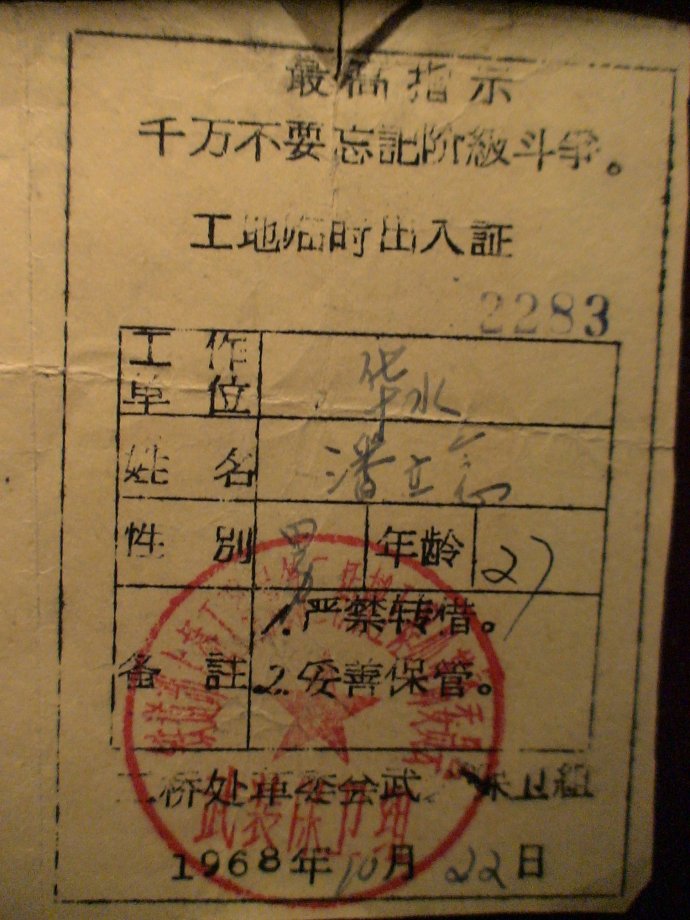 最高指示
千万不要忘記阶級斗争。
工地临时出入証
2283
工作单位 华水
姓名 潘立
性别 男 年龄 27
备註 1.严禁转借。
2.妥善保管。
桥处革委会武 保卫組
武装保卫组
1968年10月22日